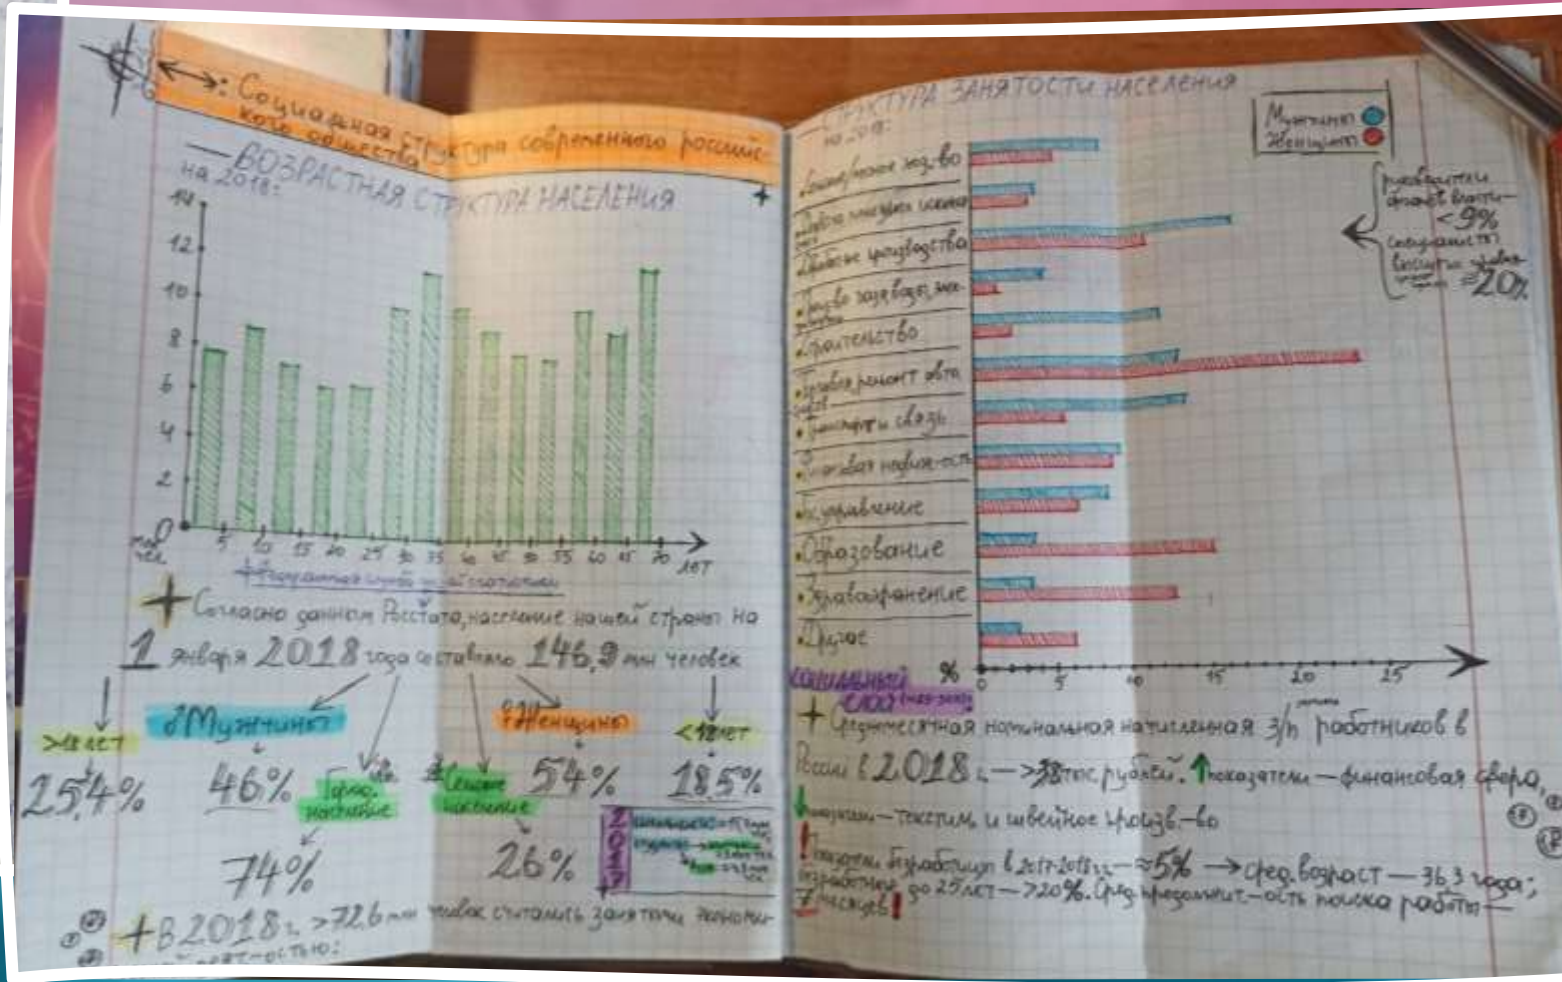 : Социальная структура современного российс-
кого общества
— ВОЗРАСТНАЯ СТРУКТУРА НАСЕЛЕНИЯ
на 2018:
14
12
10
8
6
4
2
0
чел.
5 10 15 20 25 30 35 40 45 50 55 60 65 70 лет
+ Согласно данным Росстата, население нашей страны на
1 января 2018 года составляло 146,9 млн человек
>18 лет
♂Мужчины
♀Женщины
<18 лет
25,4%
46%
Город.
население
Сельское
население
54%
18,5%
74%
26%
2017
+ В 2018 г. >72,6 млн человек считались занятыми экономи-
СТРУКТУРА ЗАНЯТОСТИ НАСЕЛЕНИЯ
на 2018:
Мужчины
Женщины
руководители
органов власти —
<9%
специалисты
высшего уровня
≈20%
хоз-во
производства
• Строительство
ремонт авто
• Транспорт и связь
• Гос. управление
• Образование
• Здравоохранение
• Другое
% 0 5 10 15 20 25
социальный
слой
+ Среднемесячная номинальная начисленная з/п работников в
России в 2018 г. — >38 тыс рублей. ↑ показатели — финансовая сфера,
↓ — текстил. и швейное произв.-во
! Показатели безработицы в 2017-2018 гг. — ≈5% → сред. возраст — 36,3 года;
безработных до 25 лет — >20%. Сред. продолжит-ость поиска работы —
7 месяцев!